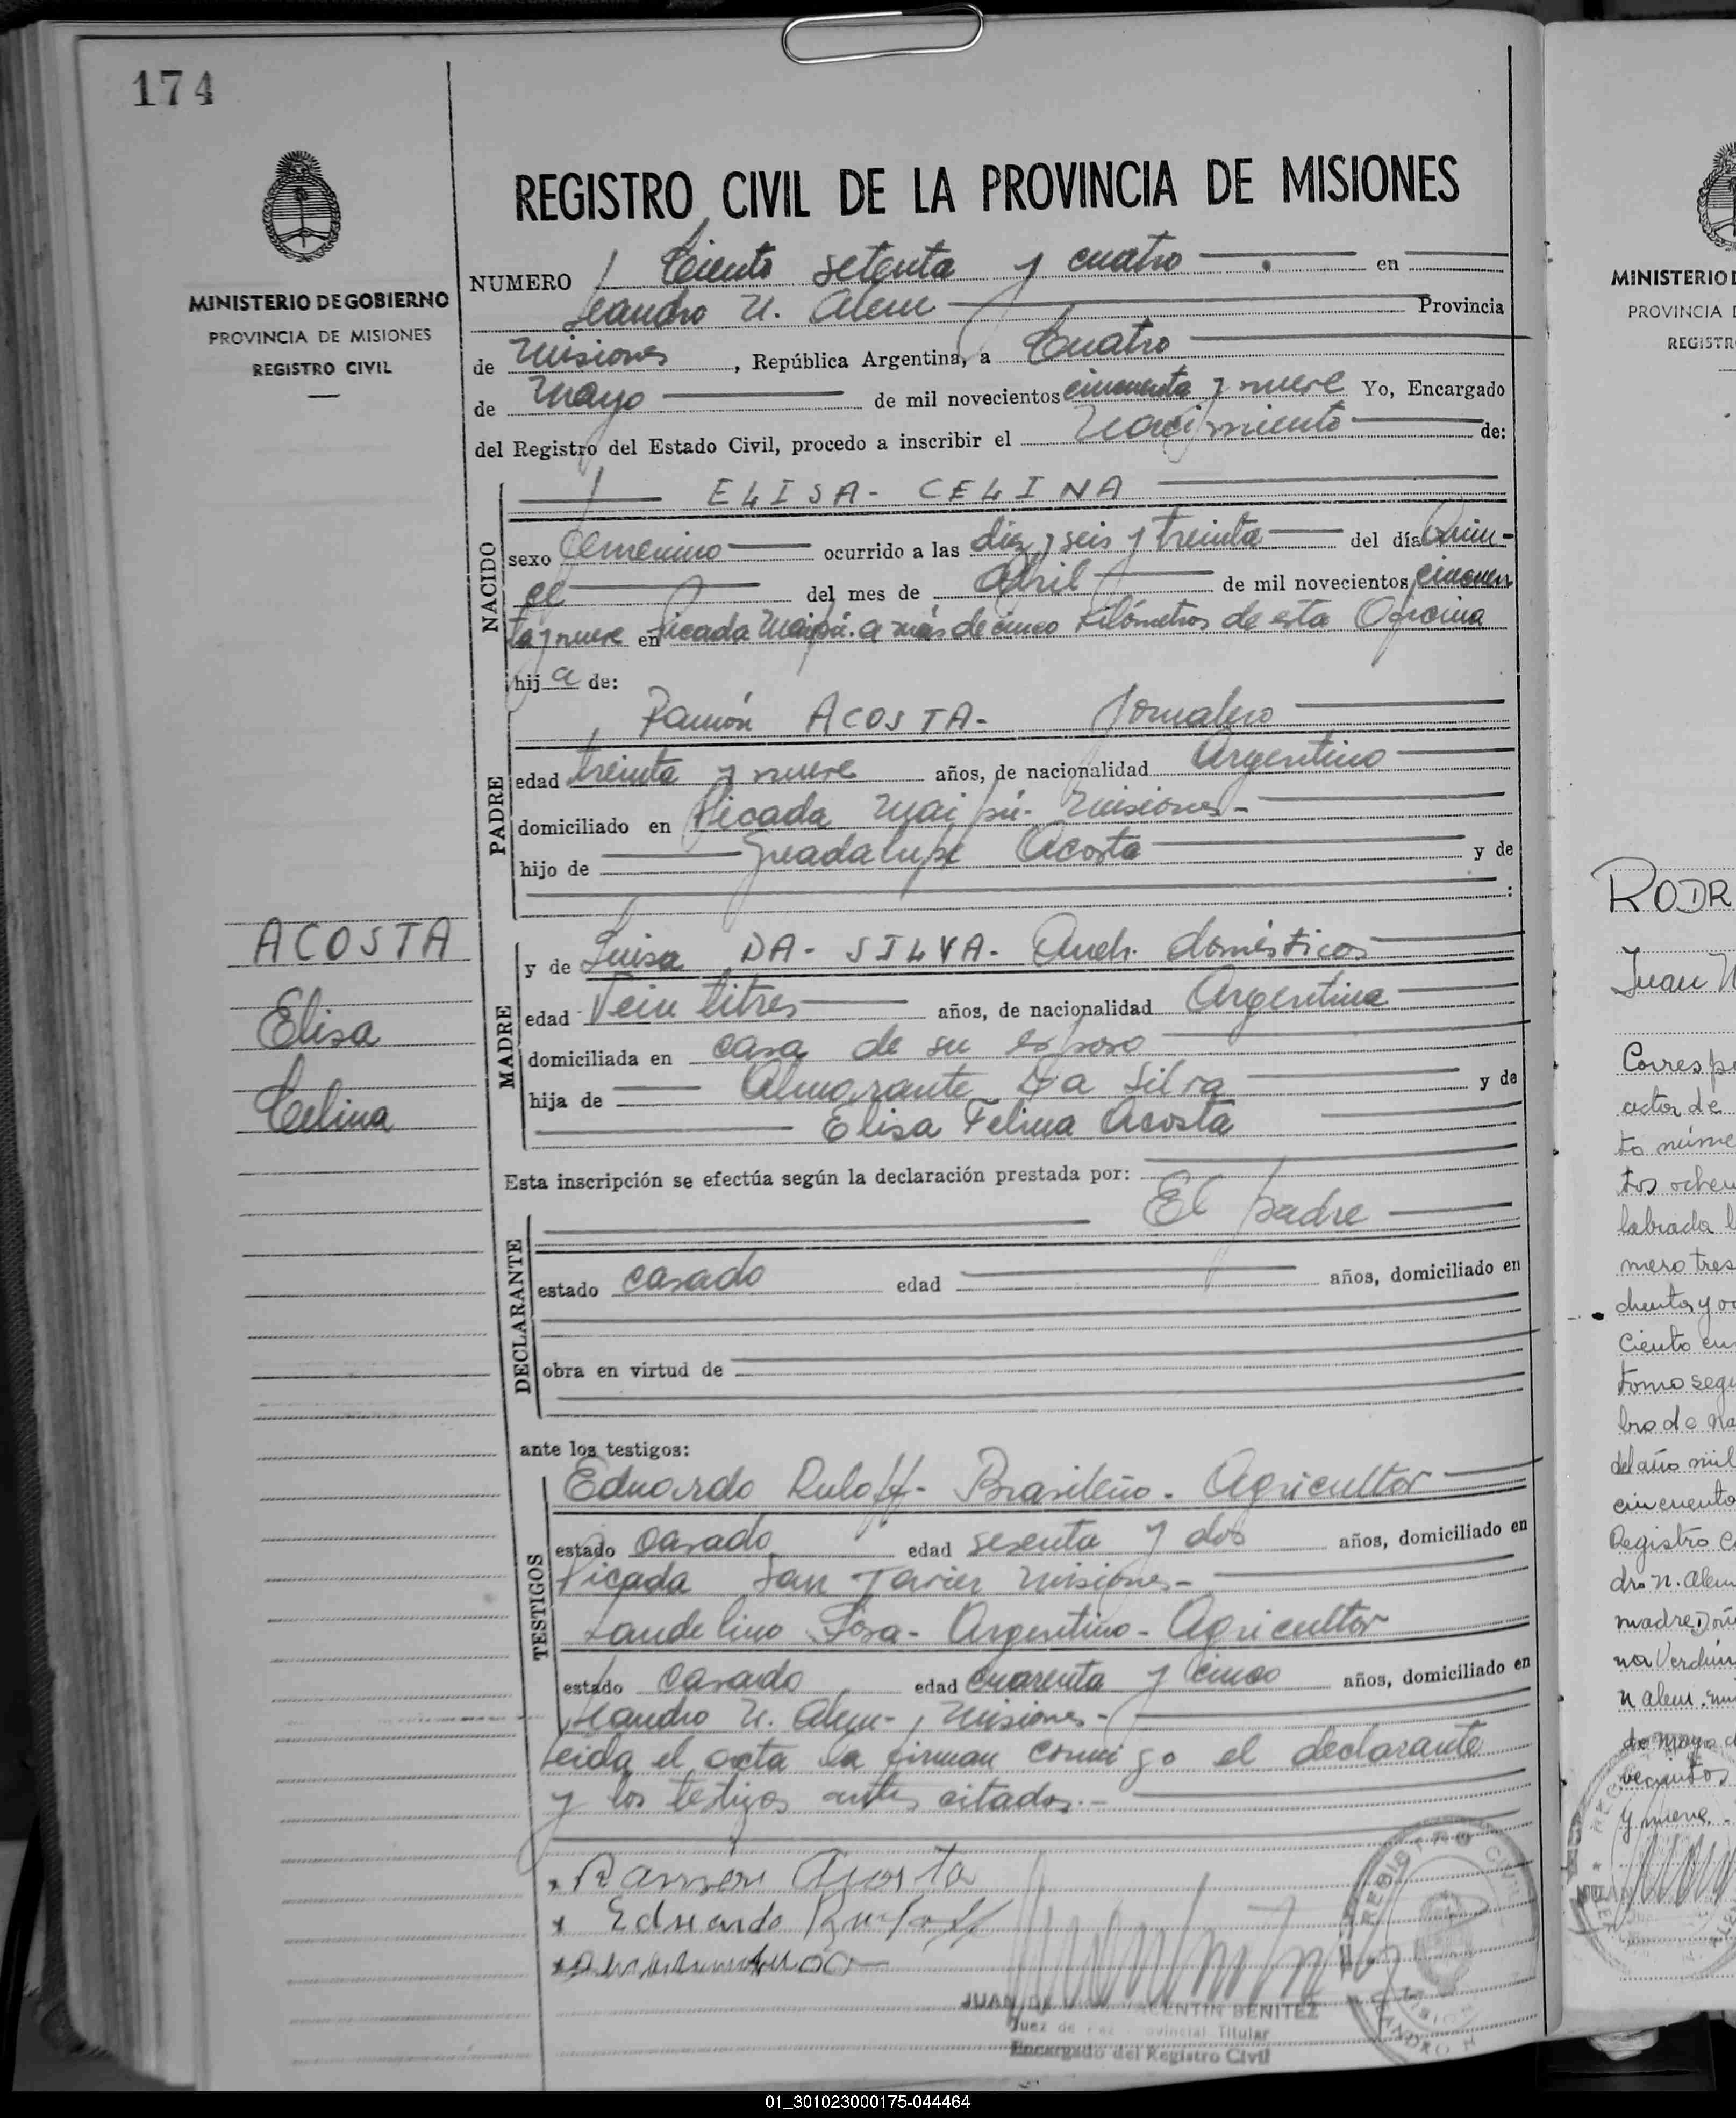 174
MINISTERIO DE GOBIERNO
PROVINCIA DE MISIONES
REGISTRO CIVIL
REGISTRO CIVIL DE LA PROVINCIA DE MISIONES
NUMERO Ciento setenta y cuatro en
Leandro N. Alem Provincia
de Misiones, República Argentina, a Cuatro
de Mayo de mil novecientos cincuenta y nueve Yo, Encargado
del Registro del Estado Civil, procedo a inscribir el Nacimiento de:
NACIDO
ELISA - CELINA
sexo femenino ocurrido a las diez y seis y treinta del día Quin-
ce del mes de Abril de mil novecientos cincuen
ta y nueve en Picada Maipú. a más de cinco kilómetros de esta Oficina
hija de:
PADRE
Ramón ACOSTA - Jornalero
edad treinta y nueve años, de nacionalidad Argentino
domiciliado en Picada Maipú - Misiones -
hijo de Guadalupe Acosta y de
:
MADRE
y de Luisa DA - SILVA - Queh. domésticos
edad Veintitres años, de nacionalidad Argentina
domiciliada en casa de su esposo
hija de Almarante Da Silva y de
Elisa Felina Acosta
ACOSTA
Elisa
Celina
Esta inscripción se efectúa según la declaración prestada por:
DECLARANTE
El padre
estado casado edad años, domiciliado en
obra en virtud de
ante los testigos:
TESTIGOS
Eduardo Ruloff - Brasileño - Agricultor
estado casado edad sesenta y dos años, domiciliado en
Picada San Javier Misiones -
Landelino Sosa - Argentino - Agricultor
estado casado edad cuarenta y cinco años, domiciliado en
Leandro N. Alem - Misiones -
Leida el acta la firman conmigo el declarante
y los testigos antes citados. -
Ramón Acosta
Eduardo Ruloff
JUAN VALENTIN BENITEZ
Juez de Paz Provincial Titular
Encargado del Registro Civil
REGISTRO CIVIL
MINISTERIO
PROVINCIA
REGISTR
RODR
Juan N
Corresp
acta de
to núme
tos ochen
labrada
mero tres
Ciento cu
tomo segu
bro de na
del año mil
cincuenta
Registro C
dro N. Alem
madre
na Verdún
N Alem.
de mayo
y nueve.
01_301023000175-044464